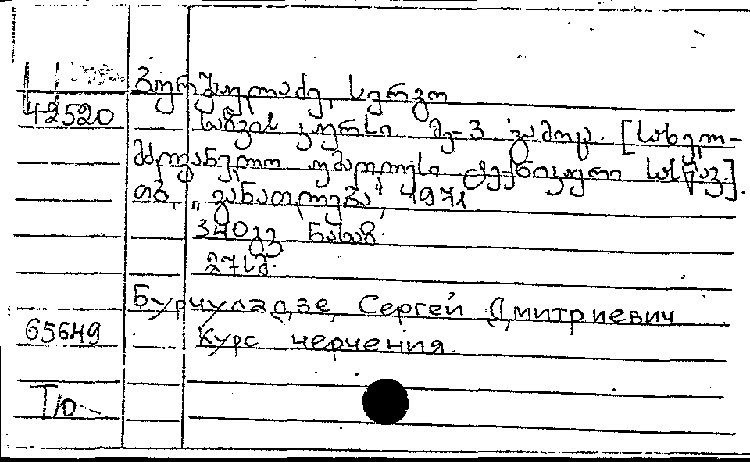 ბურჭულაძე, სერგო
42520
ხაზვის კურსი. მე-3 გამოც. [სახელმ-
მძღვანელო უმაღლესი ტექნიკური სასწავ].
თბ., „განათლება", 1971.
340გვ ნახაზ.
271სმ.
Бурчуладзе, Сергей Дмитриевич
65649
Курс черчения.